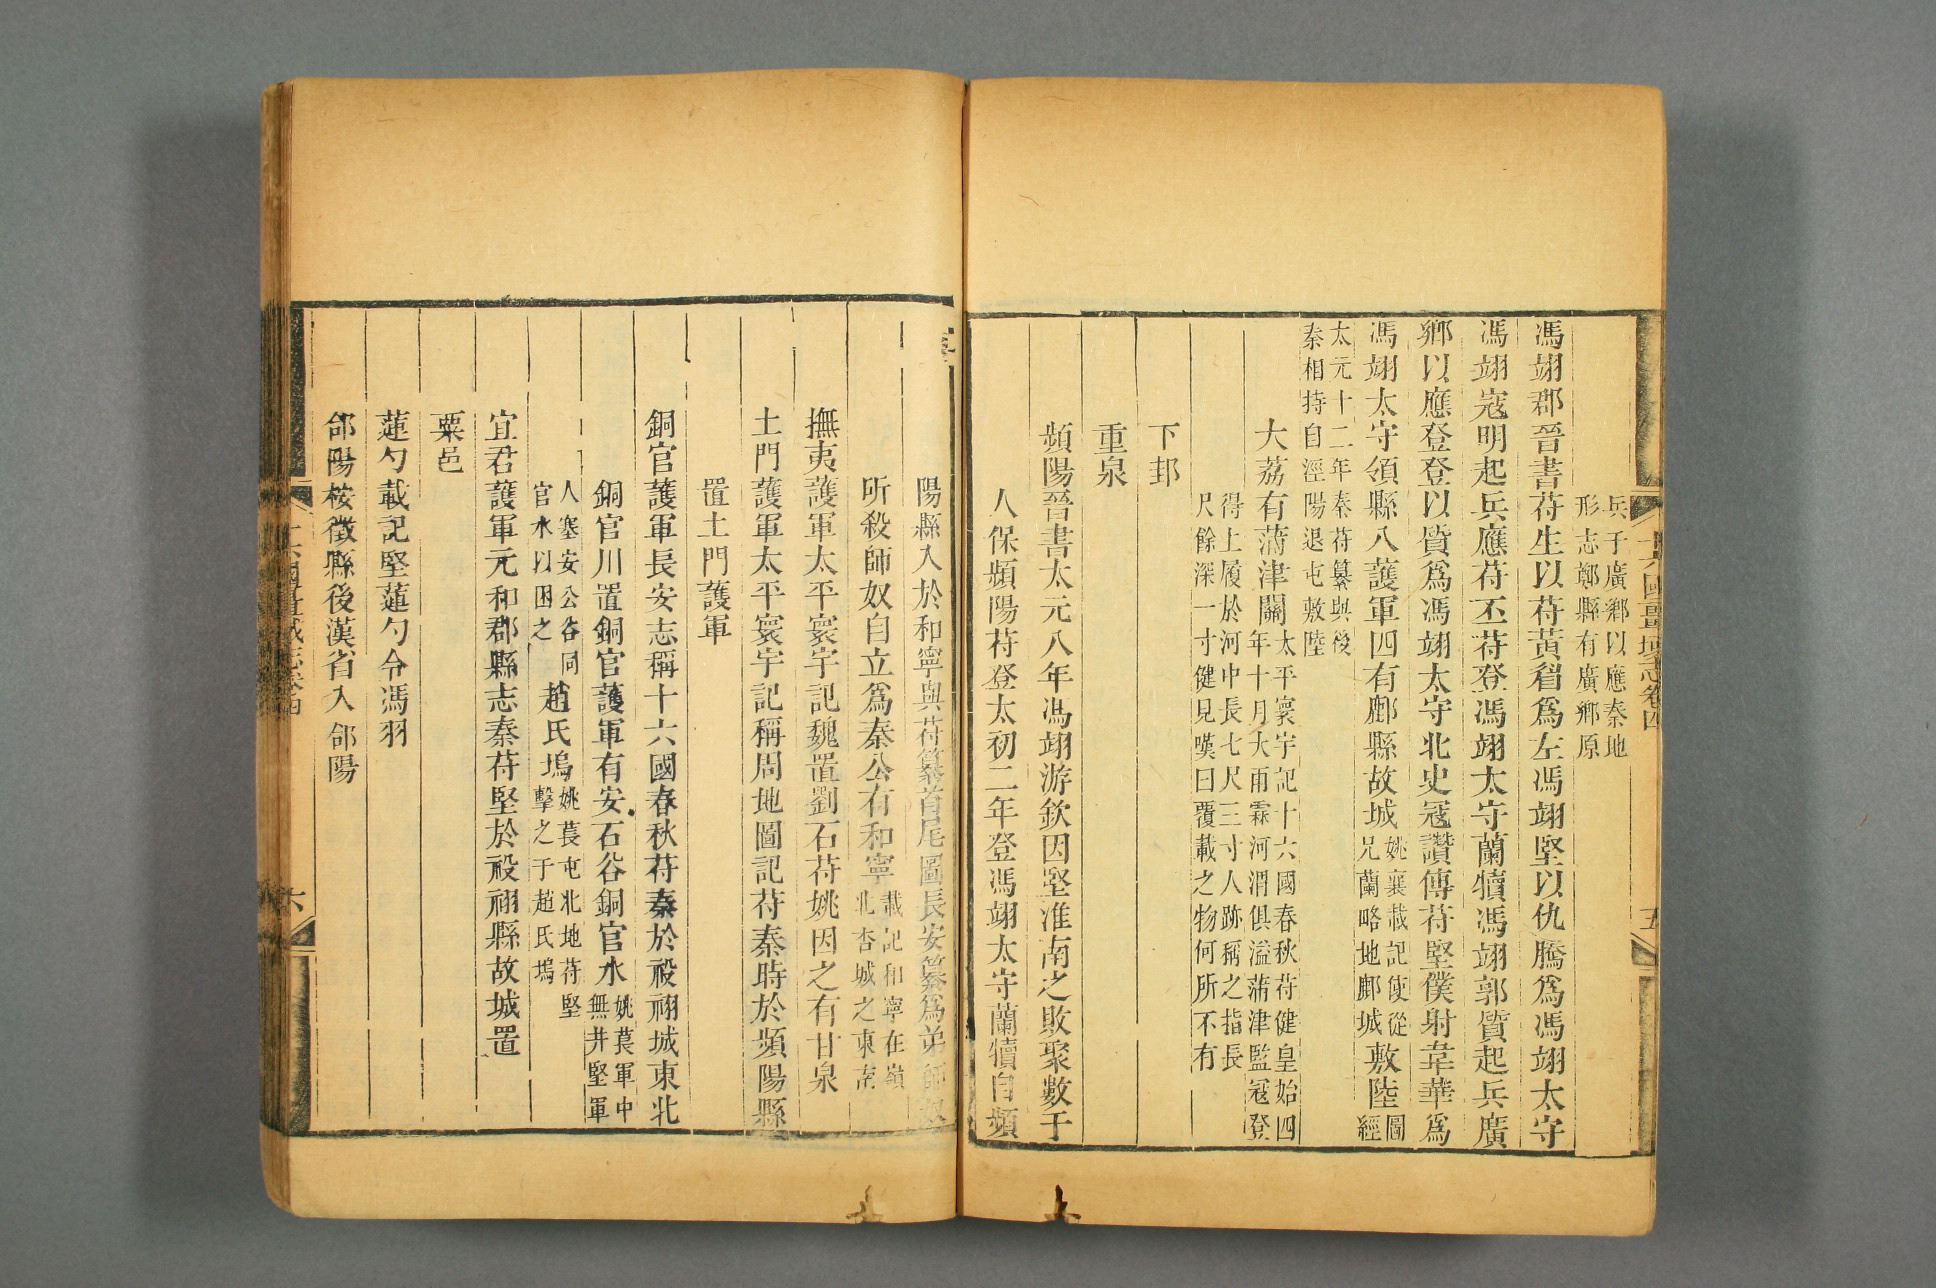 十六國疆域志卷四
五
兵子廣鄉以應秦地
形志鄭縣有廣鄉原
馮翊郡晉書苻生以苻黃眉爲左馮翊堅以仇騰爲馮翊太守
馮翊寇明起兵應苻丕苻登馮翊太守蘭犢馮翊郭質起兵廣
鄉以應登登以質爲馮翊太守北史寇讚傳苻堅僕射韋華爲
馮翊太守領縣八護軍四有鄜縣故城
姚襄載記使從
兄蘭略地鄜城
敷陸
圖
經
太元十二年秦苻纂與後
秦相持自涇陽退屯敷陸
大荔有蒲津關
太平寰宇記十六國春秋苻健皇始四
年十月大雨霖河渭俱溢蒲津監寇登
得上履於河中長七尺三寸人跡稱之指長
尺餘深一寸健見嘆曰覆載之物何所不有
下邽
重泉
頻陽晉書太元八年馮翊游欽因堅淮南之敗聚數千
人保頻陽苻登太初二年登馮翊太守蘭犢自頻
陽縣入於和寧與苻纂首尾圖長安纂爲弟師奴
所殺師奴自立爲秦公有和寧
載記和寧在嶺
北杏城之東南
撫夷護軍太平寰宇記魏置劉石苻姚因之有甘泉
土門護軍太平寰宇記稱周地圖記苻秦時於頻陽縣
置土門護軍
銅官護軍長安志稱十六國春秋苻秦於祋祤城東北
銅官川置銅官護軍有安石谷銅官水
姚萇軍中
無井堅軍
人塞安公谷同
官水以困之
趙氏塢
姚萇屯北地苻堅
擊之于趙氏塢
宜君護軍元和郡縣志秦苻堅於祋祤縣故城置
粟邑
蓮勺載記堅蓮勺令馮羽
郃陽桉徵縣後漢省入郃陽
十六國疆域志卷四
六